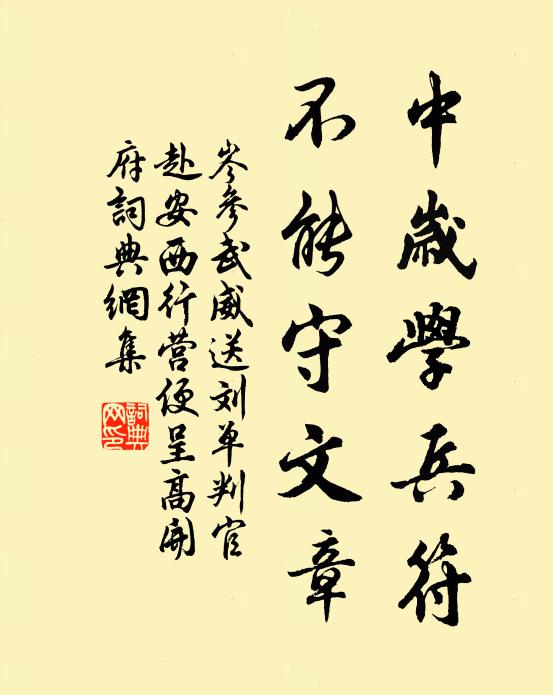 中歲學兵符
不能守文章
岑參武威送刘单判官
赴安西行营便呈高開
府詞典網集
詞典
网印